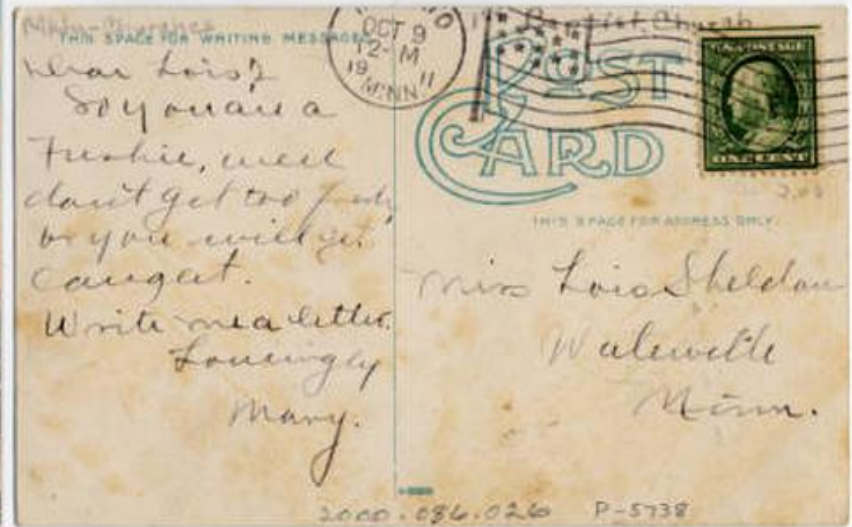 Mpls-Churches
THIS SPACE FOR WRITING MESSAGES
Dear Lois?
So you are a
Freshie, well
don't get too fresh
or you will get
caught.
Write me a letter.
Lovingly
Mary.
OCT 9
12-M
19 11
MINN
Baptist Church
POST
CARD
U.S. POSTAGE
ONE CENT
THIS SPACE FOR ADDRESS ONLY.
Miss Lois Sheldon
Minn.
2000.036.026 P-5738